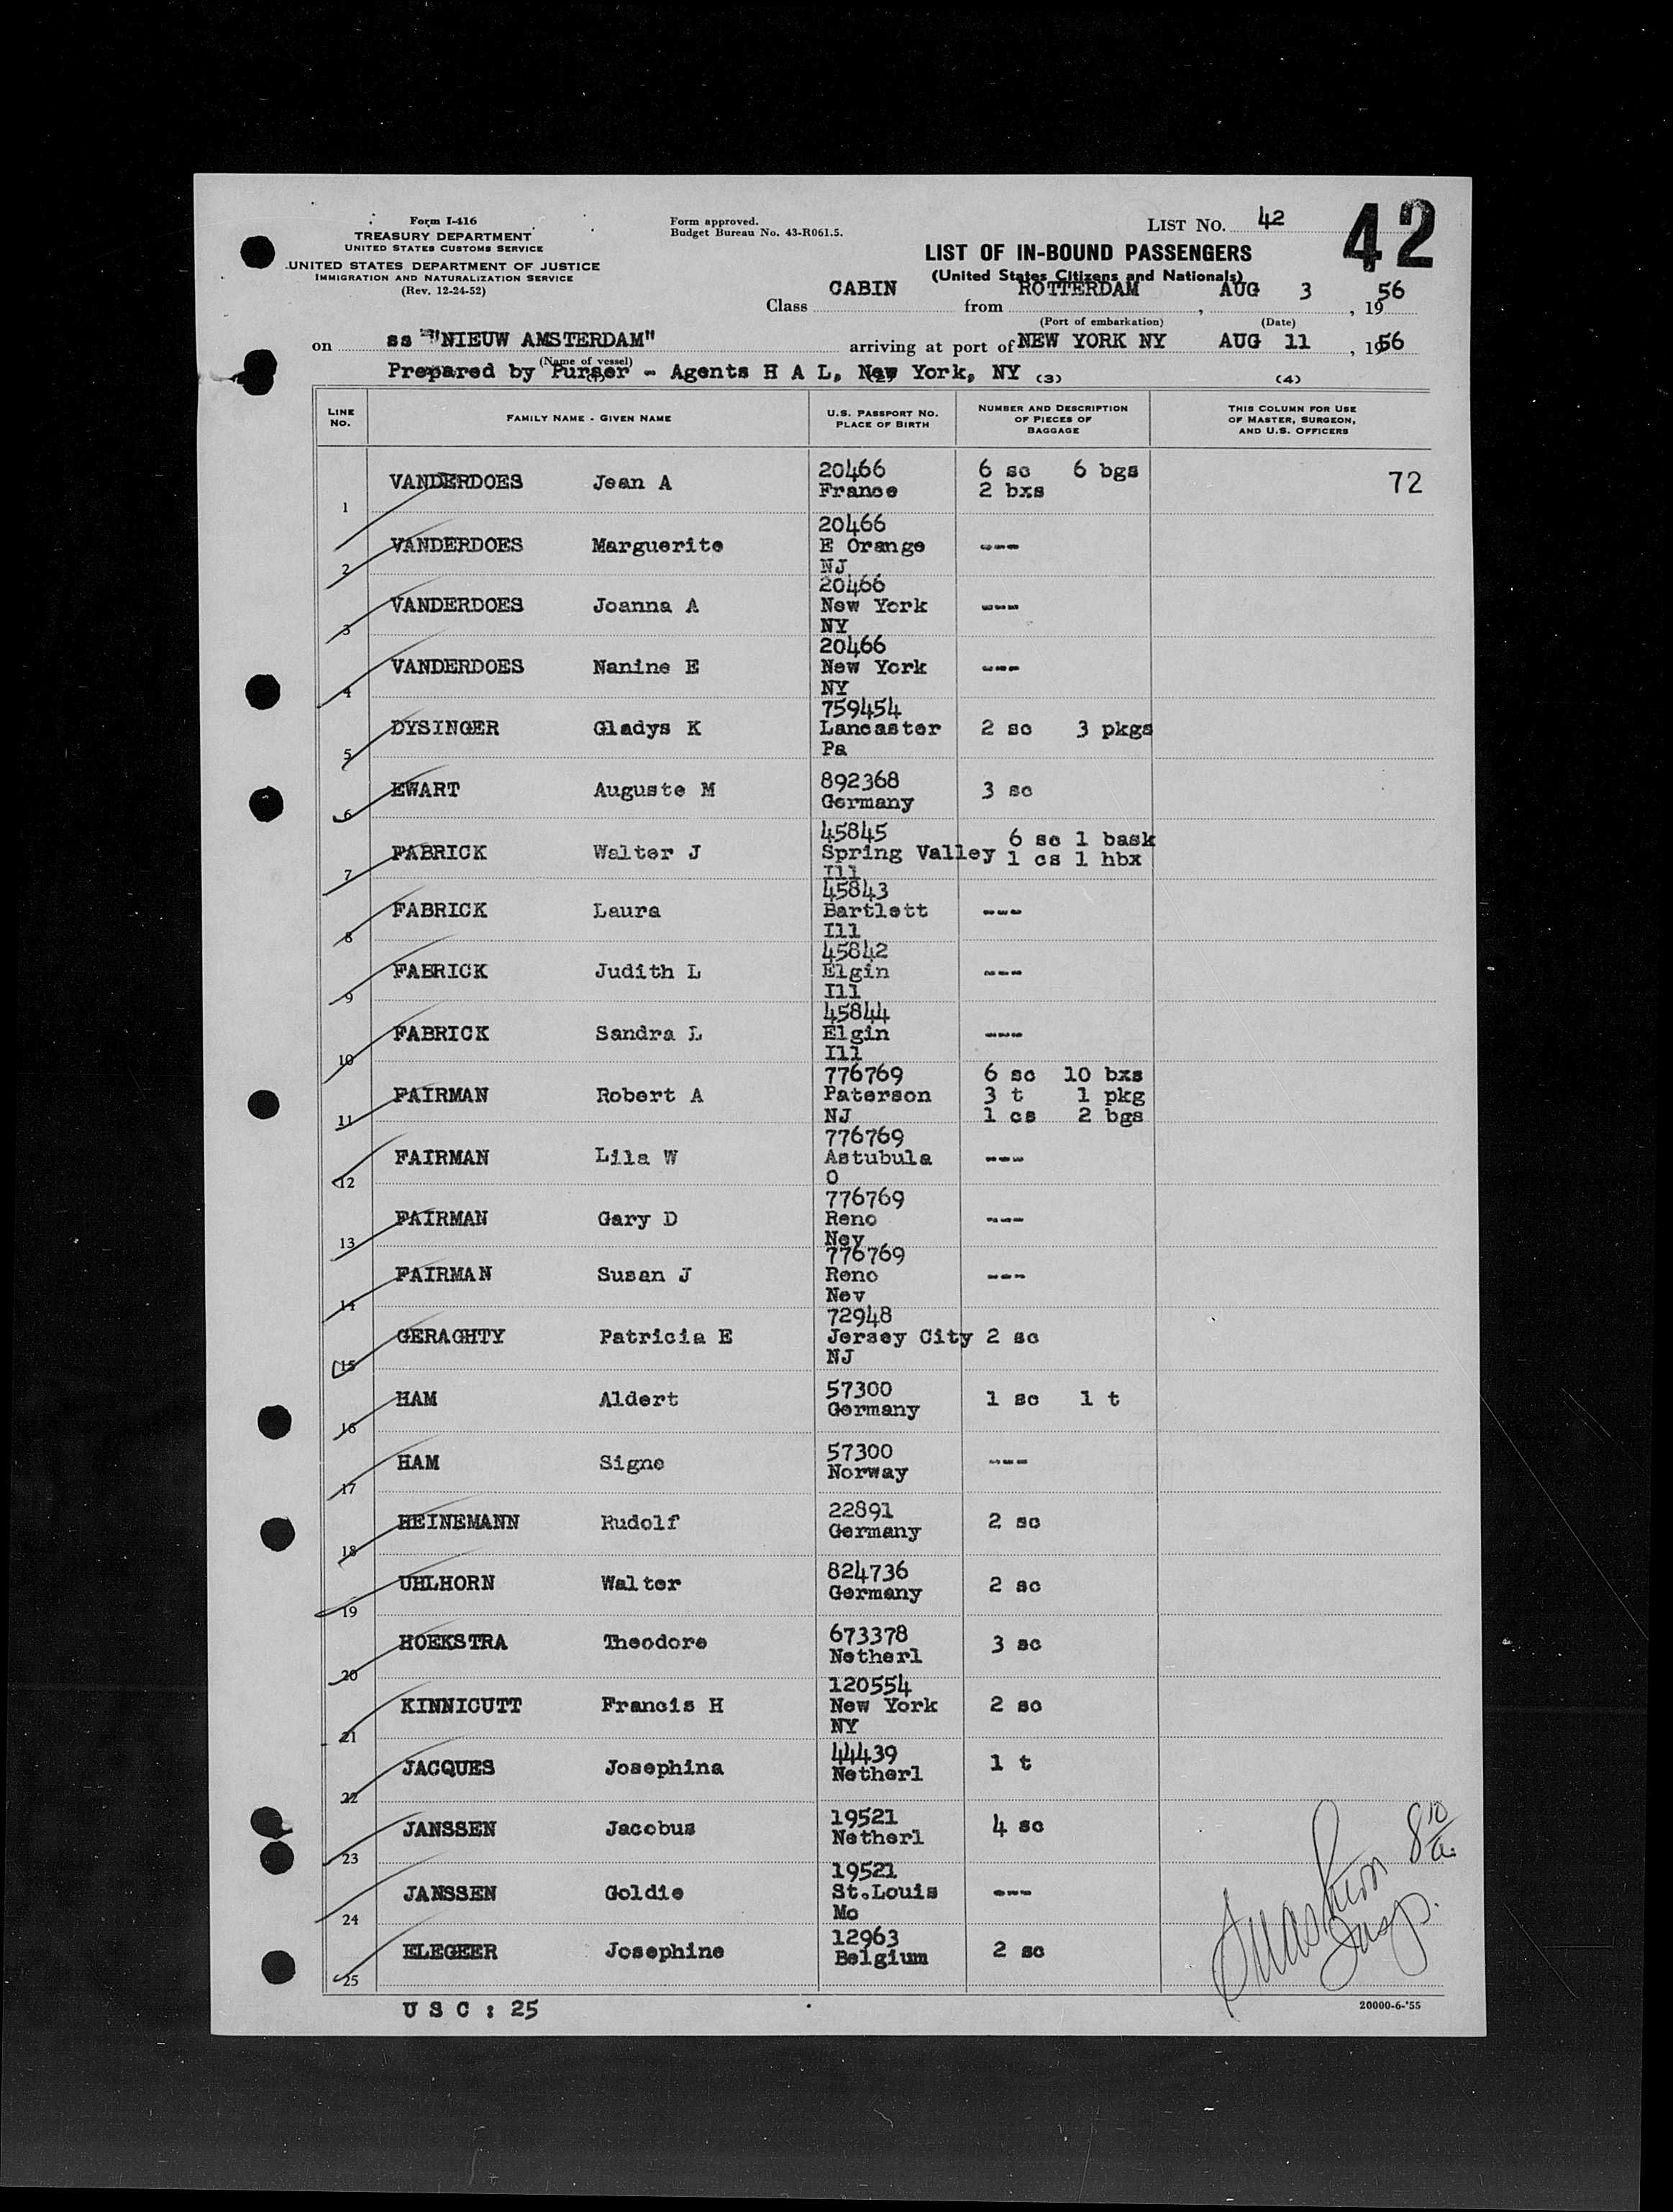 Form I-416
TREASURY DEPARTMENT
UNITED STATES CUSTOMS SERVICE
UNITED STATES DEPARTMENT OF JUSTICE
IMMIGRATION AND NATURALIZATION SERVICE
(Rev. 12-24-52)
Form approved.
Budget Bureau No. 43-R061.5.
LIST NO. 42
42
LIST OF IN-BOUND PASSENGERS
(United States Citizens and Nationals)
Class CABIN from ROTTERDAM, AUG 3, 1956
(Port of embarkation) (Date)
on ss "NIEUW AMSTERDAM" arriving at port of NEW YORK NY AUG 11, 1956
(Name of vessel)
Prepared by Purser - Agents H A L, New York, NY
(1) (2) (3) (4)
LINE NO. FAMILY NAME - GIVEN NAME U.S. PASSPORT NO. PLACE OF BIRTH NUMBER AND DESCRIPTION OF PIECES OF BAGGAGE THIS COLUMN FOR USE OF MASTER, SURGEON, AND U.S. OFFICERS
1 VANDERDOES Jean A 20466 France 6 sc 6 bgs 2 bxs 72
2 VANDERDOES Marguerite 20466 E Orange NJ ---
3 VANDERDOES Joanna A 20466 New York NY ---
4 VANDERDOES Nanine E 20466 New York NY ---
5 DYSINGER Gladys K 759454 Lancaster Pa 2 sc 3 pkgs
6 EWART Auguste M 892368 Germany 3 sc
7 FABRICK Walter J 45845 Spring Valley Ill 6 sc 1 bask 1 cs 1 hbx
8 FABRICK Laura 45843 Bartlett Ill ---
9 FABRICK Judith L 45842 Elgin Ill ---
10 FABRICK Sandra L 45844 Elgin Ill ---
11 FAIRMAN Robert A 776769 Paterson NJ 6 sc 10 bxs 3 t 1 pkg 1 cs 2 bgs
12 FAIRMAN Lila W 776769 Astubula O ---
13 FAIRMAN Gary D 776769 Reno Nev ---
14 FAIRMAN Susan J 776769 Reno Nev ---
15 GERAGHTY Patricia E 72948 Jersey City NJ 2 sc
16 HAM Aldert 57300 Germany 1 sc 1 t
17 HAM Signe 57300 Norway ---
18 HEINEMANN Rudolf 22891 Germany 2 sc
19 UHLHORN Walter 824736 Germany 2 sc
20 HOEKSTRA Theodore 673378 Netherl 3 sc
21 KINNICUTT Francis H 120554 New York NY 2 sc
22 JACQUES Josephina 44439 Netherl 1 t
23 JANSSEN Jacobus 19521 Netherl 4 sc
24 JANSSEN Goldie 19521 St.Louis Mo ---
25 ELEGEER Josephine 12963 Belgium 2 sc
Insp.
U S C : 25
20000-6-'55